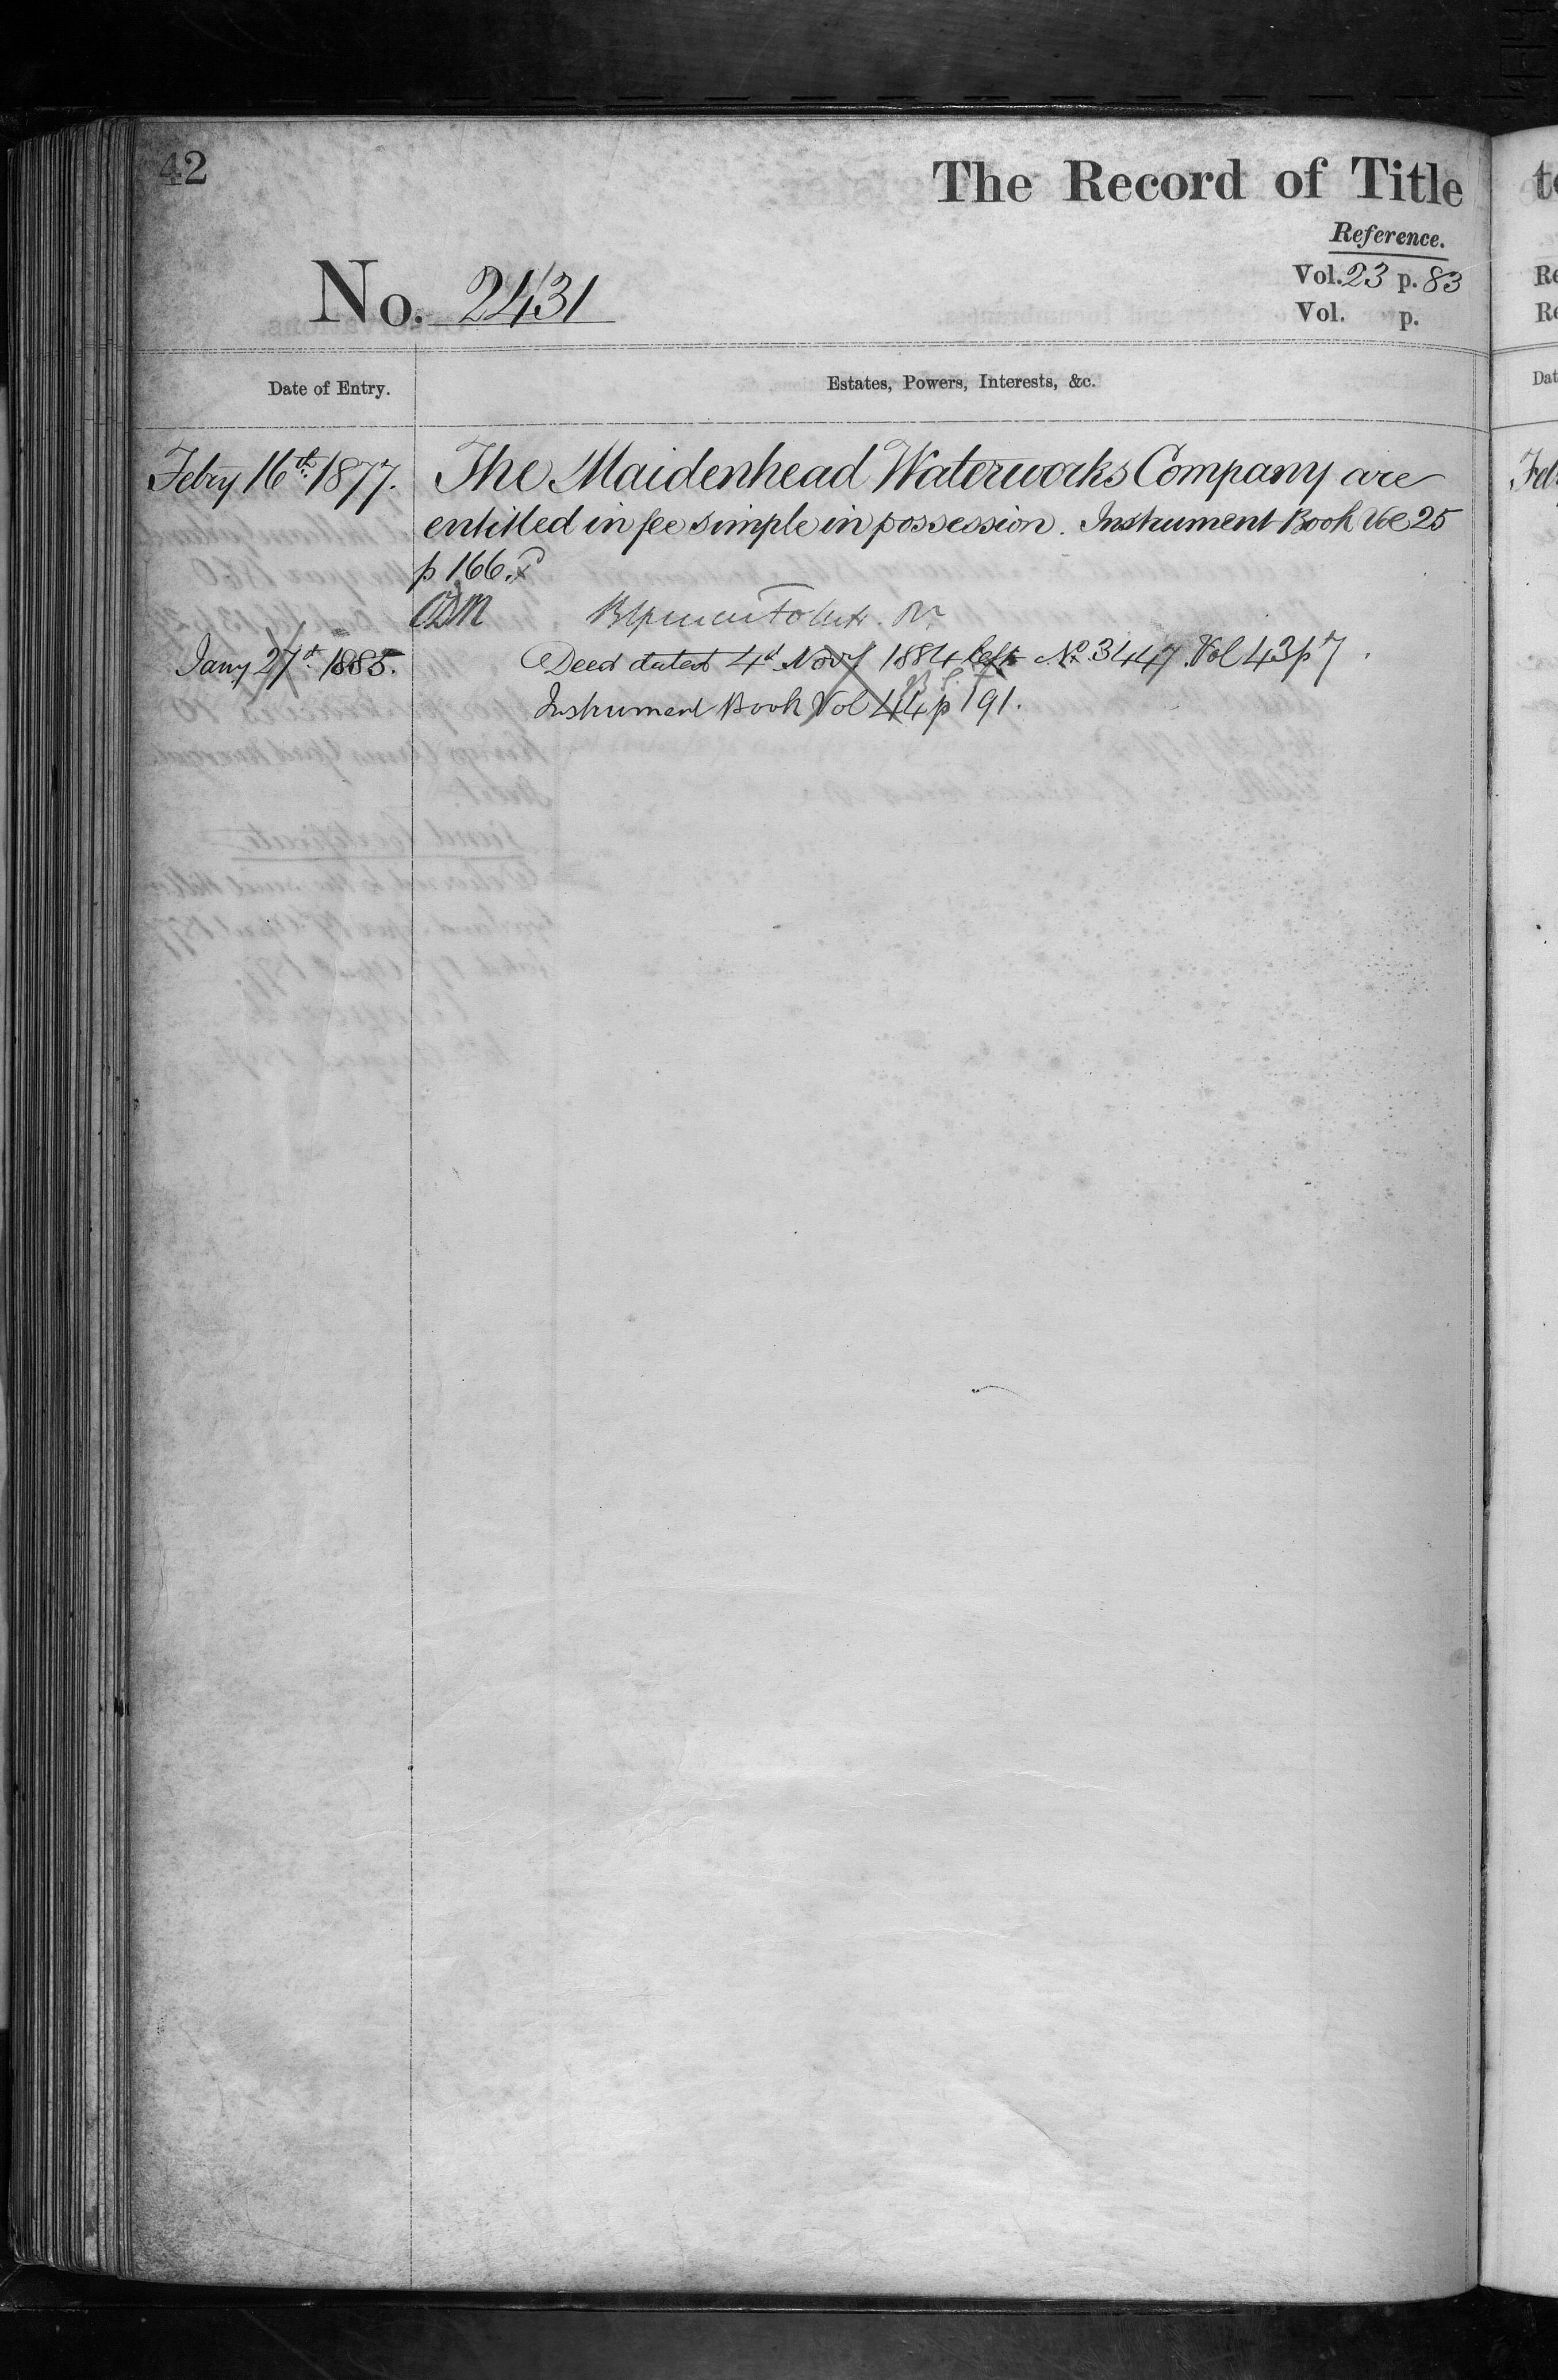 42
The Record of Title
Reference.
No. 2431
Vol. 23 p. 83
Vol. p.
Date of Entry.
Estates, Powers, Interests, &c.
Febry 16th 1877. The Maidenhead Waterworks Company are
entitled in fee simple in possession. Instrument Book Vol 25
p 166.
Jany 27th 1885. Deed dated 4th Novr 1884 left No 3447 Vol 43 p 7.
Instrument Book Vol 44 p 191.